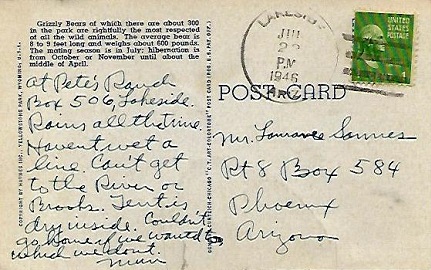 Grizzly Bears of which there are about 300
in the park are rightfully the most respected
of all the wild animals. The average bear is
8 to 9 feet long and weighs about 600 pounds.
The mating season is in July; hibernation is
from October or November until about the
middle of April.
At Pete's Ranch
Box 506, Lakeside.
Rains all the time.
Havent wet a
line. Can't get
to the River or
Brooks. Tent is
dry inside. Couldn't
go home if we wanted to
which we dont.
COPYRIGHT BY HAYNES INC., YELLOWSTONE PARK, WYOMING, U.S.A.
LAKESIDE
JUL
22
PM
1946
ARIZ.
UNITED STATES
POSTAGE
POST CARD
Mr.
Rt 8 Box 584
Phoenix
Arizona